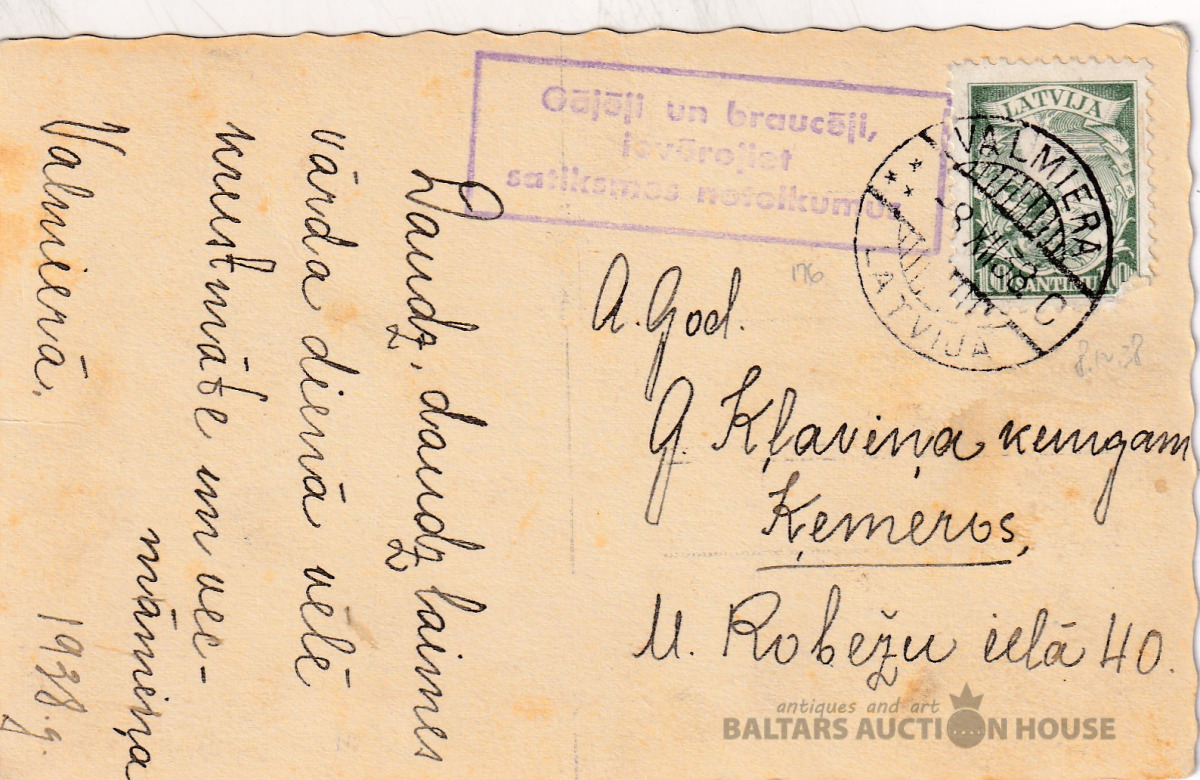 Gājēji un braucēji,
ievērojiet
satiksmes noteikumus
LATVIJA
10 SANTIMU 10
VALMIERA
-8 XII 38. C
LATVIJA
176
8.12.38
A. God.
G. Kļaviņa kungam
Ķemeros,
M. Robežu ielā 40.
Daudz, daudz laimes
vārda dienā vēlē
krustmāte un vec-
māmiņa
Valmierā.
1938.g.
antiques and art
BALTARS AUCTION HOUSE